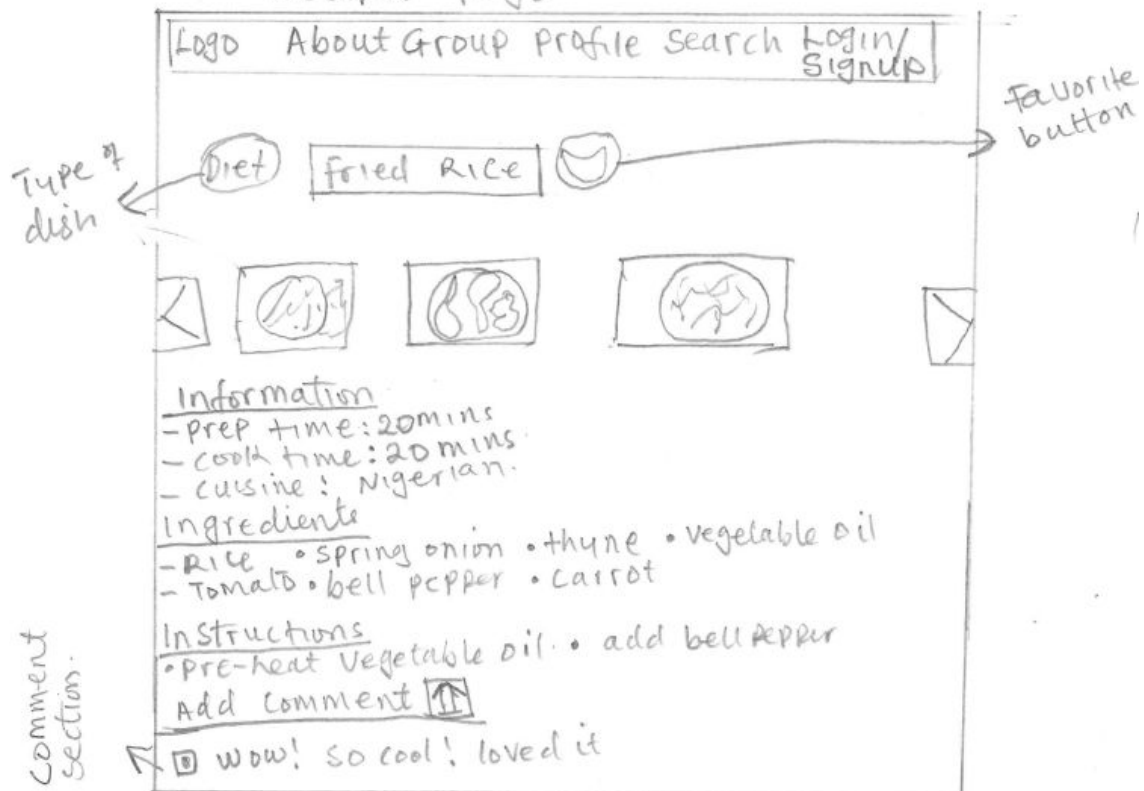 Logo About Group Profile Search Login/
Signup
Favorite
button
Type of
dish
Diet Fried Rice
Information
- Prep time: 20mins
- Cook time: 20 mins.
- Cuisine: Nigerian.
Ingredients
- Rice • spring onion • thyne • vegetable oil
- Tomato • bell pepper • carrot
Instructions
• Pre-heat vegetable oil. • add bell pepper
Add comment
Comment
section.
Wow! So cool! loved it